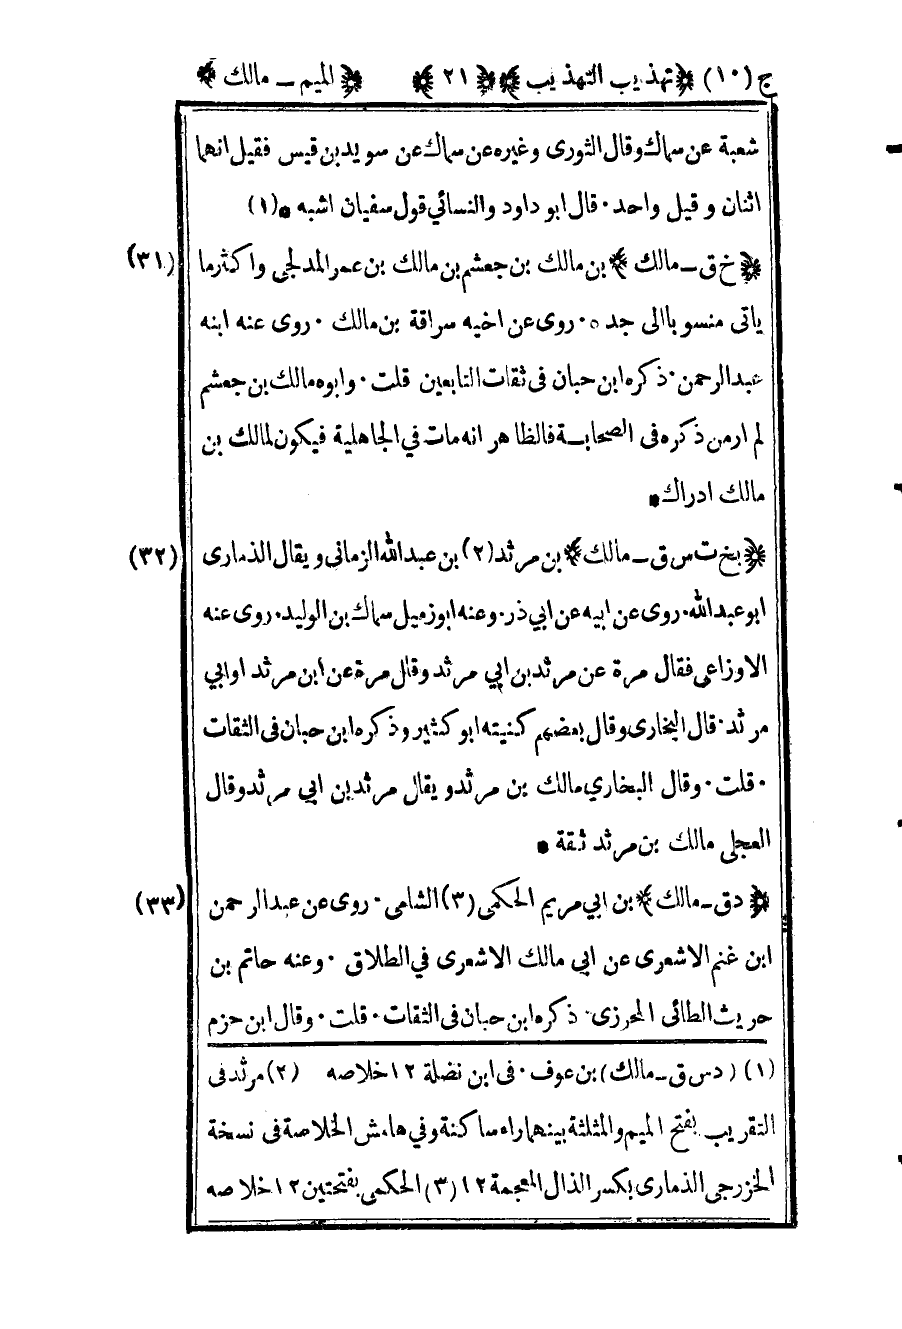 ج (١٠) ﴿تهذيب التهذيب﴾ ﴿٢١﴾ ﴿الميم ــ مالك﴾
شعبة عن سماك وقال الثورى وغيره عن سماك عن سويد بن قيس فقيل انهما
اثنان و قيل واحد ٠ قال ابو داود والنسائي قول سفيان اشبه * (١)
﴿خ ق ــ مالك﴾ بن مالك بن جعشم بن مالك بن عمر المدلجي واكثر ما (٣١)
ياتى منسوبا الى جده ٠ روى عن اخيه سراقة بن مالك ٠ روى عنه ابنه
عبدالرحمن ٠ ذكره ابن حبان فى ثقات التابعين قلت ٠ وابوه مالك بن جعشم
لم ار من ذكره فى الصحابة فالظاهر انه مات في الجاهلية فيكون لمالك بن
مالك ادراك *
﴿بخ ت س ق ــ مالك﴾ بن مرثد (٢) بن عبدالله الزماني ويقال الذمارى (٣٢)
ابو عبدالله ٠ روى عن ابيه عن ابي ذر ٠ وعنه ابو زميل سماك بن الوليد ٠ روى عنه
الاوزاعى فقال مرة عن مرثد بن ابي مرثد وقال مرة عن ابن مرثد او ابي
مرثد ٠ قال البخارى وقال بعضهم كنيته ابو كثير وذكره ابن حبان فى الثقات
٠ قلت ٠ وقال البخاري مالك بن مرثد ويقال مرثد بن ابي مرثد وقال
العجلى مالك بن مرثد ثقة *
﴿دق ــ مالك﴾ بن ابي مريم الحكمى (٣) الشامى ٠ روى عن عبدالرحمن (٣٣)
ابن غنم الاشعرى عن ابي مالك الاشعرى في الطلاق ٠ وعنه حاتم بن
حريث الطائى المحرزى ٠ ذكره ابن حبان فى الثقات ٠ قلت ٠ وقال ابن حزم
(١) (د س ق ــ مالك) بن عوف ٠ فى ابن نضلة ١٢ خلاصه (٢) مرثد فى
التقريب بفتح الميم والمثلثة بينهما راء ساكنة وفي هامش الخلاصة فى نسخة
الخزرجى الذمارى بكسر الذال المعجمة ١٢ (٣) الحكمى بفتحتين ١٢ خلاصه